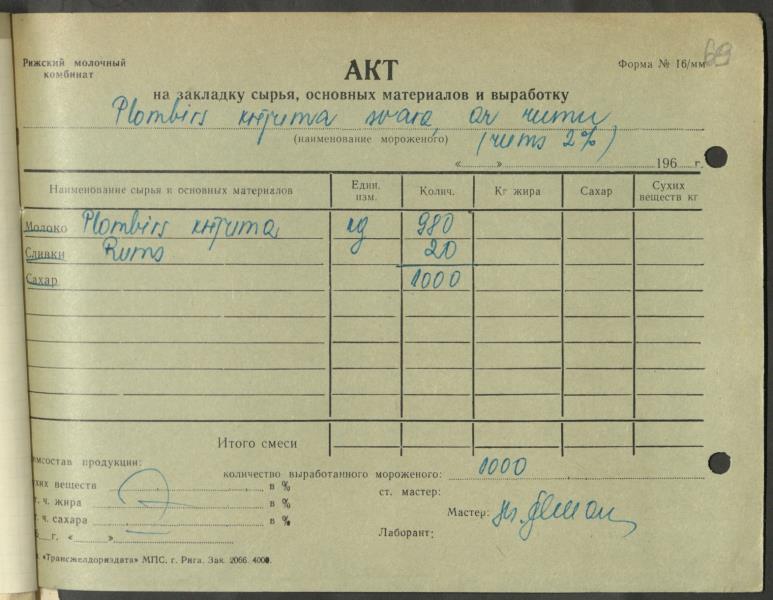 69
Рижский молочный
комбинат
Форма № 16/мм
АКТ
на закладку сырья, основных материалов и выработку
Plombirs krējuma svara, ar rumu
(наименование мороженого)
(rums 2%)
« » 196 г.
Наименование сырья и основных материалов Един. изм. Колич. Кг жира Сахар Сухих веществ кг
Молоко Plombirs krējuma kg 980
Сливки Rums 20
Сахар 1000
Итого смеси
имсостав продукции:
количество выработанного мороженого: 1000
хих веществ в %
ст. мастер:
т. ч. жира в %
Мастер:
т. ч. сахара в %
Лаборант:
г. « »
«Трансжелдориздата» МПС. г. Рига. Зак. 2066. 4000.